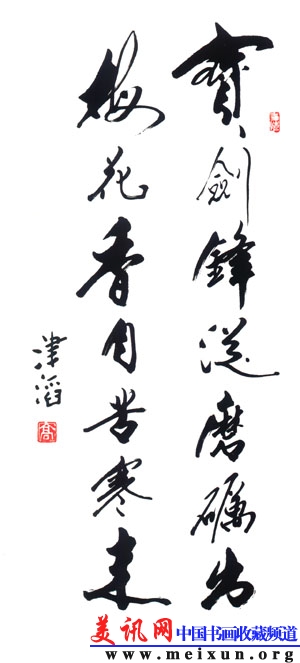 寶劍鋒從磨礪出
梅花香自苦寒来
津滔
高
美讯网 中国书画收藏频道
www.meixun.org